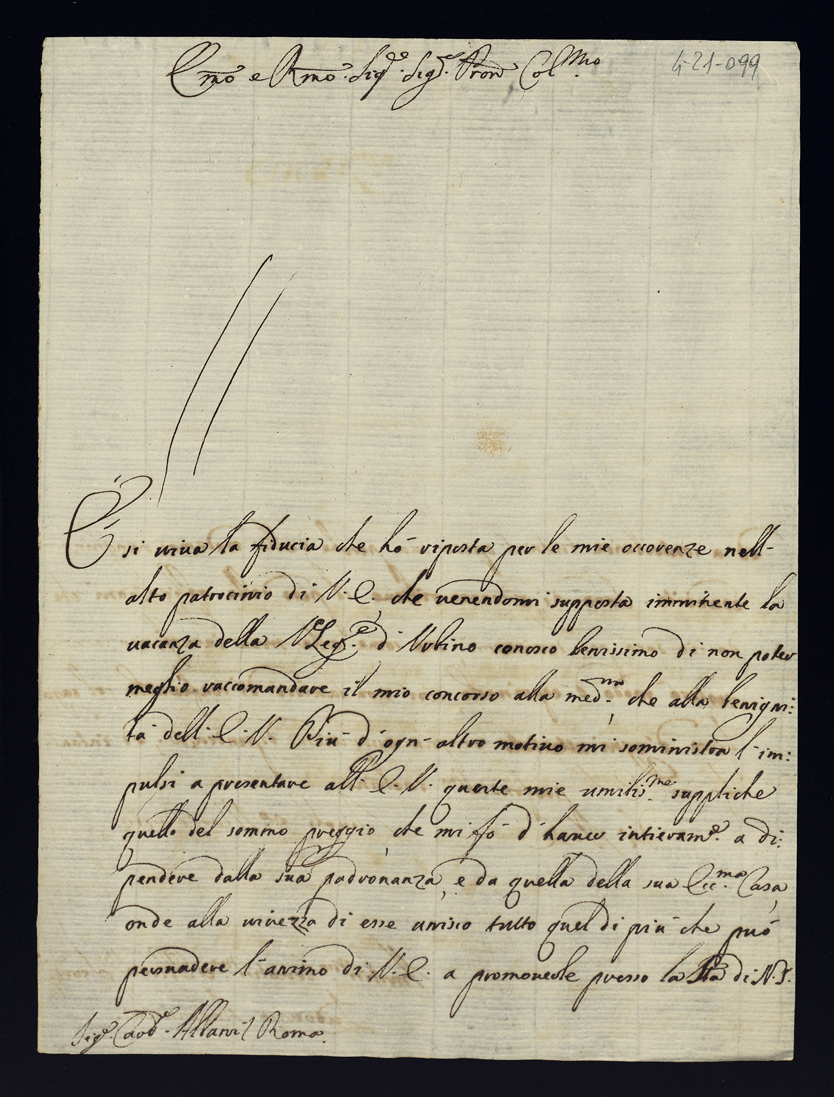 Emo e Rmo Sigre Sigre Pron Colmo
4-21-099
È si viva la fiducia che hò riposta per le mie occorenze nell-
alto patrocinio di V. E. che venendomi supposta imminente la
vacanza della VLegne d'Urbino conosco benissimo di non poter
meglio raccomandare il mio concorso alla medma che alla benigni:
tà dell'E. V. Più d'ogn altro motivo mi soministra l'im:
pulsi a presentare all'E. V. queste mie umilisme suppliche
quello del sommo preggio, che mi fò d'haver intieramte a di:
pendere dalla sua padronanza, e da quella della sua Eccma Casa,
onde alla vivezza di esse unisco tutto quel di più che può
persuadere l'animo di V. E. a promoverle presso la Stà di N. S.
Sigre Card. Albani Roma.